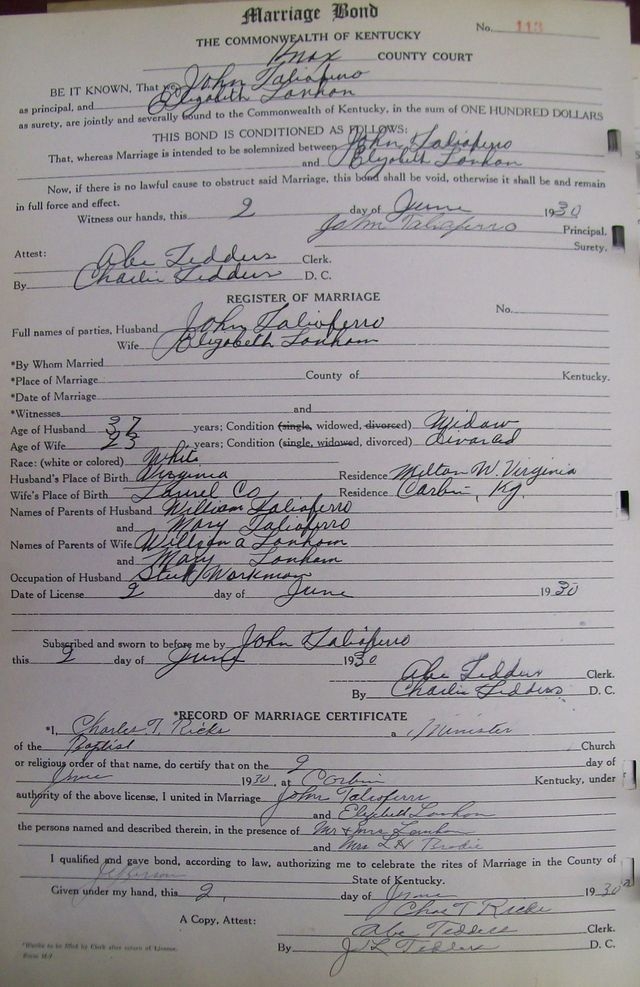 Marriage Bond
No. 113
THE COMMONWEALTH OF KENTUCKY
Knox COUNTY COURT
BE IT KNOWN, That we John Taliaferro
as principal, and Elizabeth Lanham
as surety, are jointly and severally bound to the Commonwealth of Kentucky, in the sum of ONE HUNDRED DOLLARS
THIS BOND IS CONDITIONED AS FOLLOWS:
That, whereas Marriage is intended to be solemnized between John Taliaferro
and Elizabeth Lanham
Now, if there is no lawful cause to obstruct said Marriage, this bond shall be void, otherwise it shall be and remain
in full force and effect.
Witness our hands, this 2 day of June 1930
John Taliaferro Principal.
Surety.
Attest: Abe Tedders Clerk.
By Charlie Tedders D. C.
REGISTER OF MARRIAGE
No.
Full names of parties, Husband John Taliaferro
Wife Elizabeth Lanham
*By Whom Married
*Place of Marriage County of Kentucky.
*Date of Marriage
*Witnesses and
Age of Husband 37 years; Condition (single, widowed, divorced) Widow
Age of Wife 23 years; Condition (single, widowed, divorced) Divorced
Race: (white or colored) White
Husband's Place of Birth Virginia Residence Milton W. Virginia
Wife's Place of Birth Laurel Co Residence Corbin, Ky.
Names of Parents of Husband William Taliaferro
and Mary Taliaferro
Names of Parents of Wife Willson a Lanham
and Mary Lanham
Occupation of Husband Steel Workman
Date of License 2 day of June 1930
Subscribed and sworn to before me by John Taliaferro
this 2 day of June 1930
Abe Tedders Clerk.
By Charlie Tedders D. C.
*RECORD OF MARRIAGE CERTIFICATE
*I, Charles T. Ricks a Minister
of the Baptist Church
or religious order of that name, do certify that on the 2 day of
June 1930, at Corbin Kentucky, under
authority of the above license, I united in Marriage John Taliaferro
and Elizabeth Lanham
the persons named and described therein, in the presence of Mr & Mrs Lanham
and Mrs L H Brodie
I qualified and gave bond, according to law, authorizing me to celebrate the rites of Marriage in the County of
Jefferson State of Kentucky.
Given under my hand, this 2, day of June 1930
Chas T Ricks
A Copy, Attest: Abe Tedders Clerk.
By J L Tedders D. C.
*Blanks to be filled by Clerk after return of License.